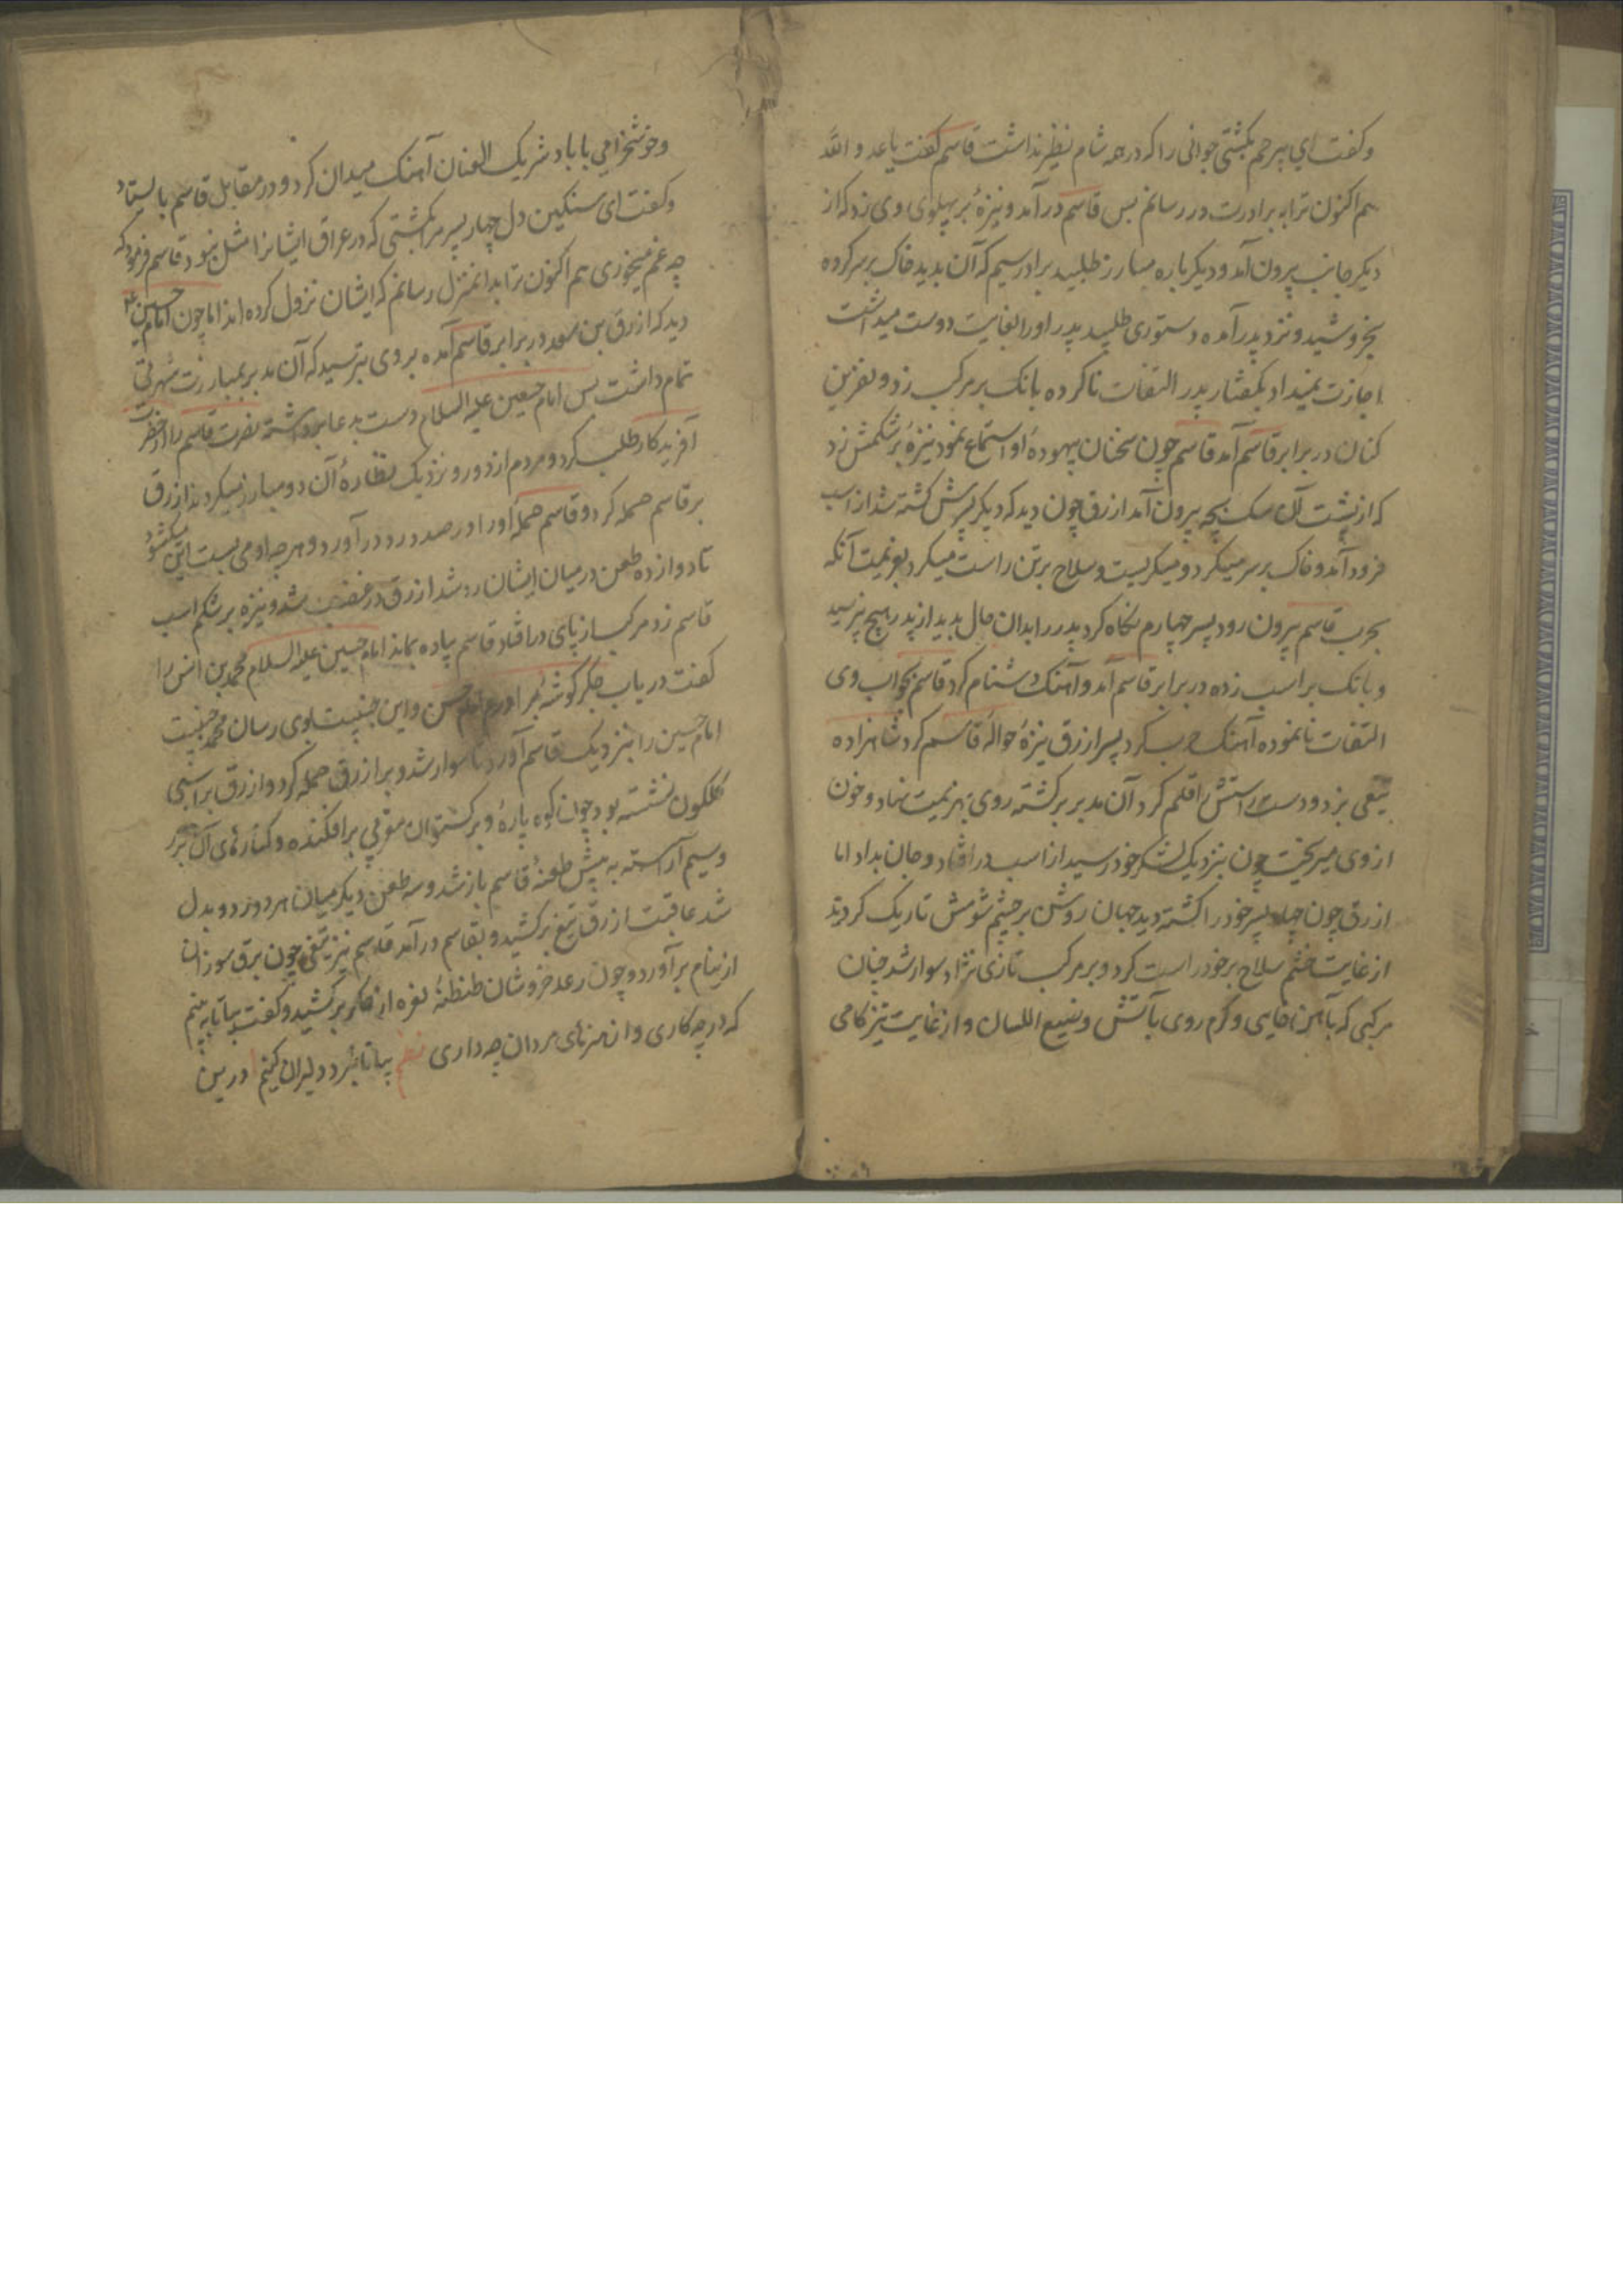 وکفت ای بیرحم بکشتی جوانی را که در همه شام نظیر نداشت قاسم کفت یا عدو الله
هم اکنون ترا به برادرت در رسانم بس قاسم درآمد و نیزهٔ بر پهلوی وی زد که از
دیکر جانب بیرون آمد و دیکر باره مبارز طلبید برادر سیم که آن بدید خاک بر سر کرده
بخروشید و نزد پدر آمده دستوری طلبید پدر او را بغایت دوست میداشت
اجازت نمیداد بکفتار پدر التفات ناکرده بانک بر مرکب زد و نفرین
کنان در برابر قاسم آمد قاسم چون سخنان بیهودهٔ او استماع نمود نیزهٔ بر شکمش زد
که از پشت آن سک بچه بیرون آمد ازرق چون دید که دیکر پسرش کشته شد از اسب
فرود آمد و خاک بر سر میکرد و میکریست و سلاح بر تن راست میکرد بعزیمت آنکه
بحرب قاسم بیرون رود پسر چهارم نکاه کرد پدر را بدان حال بدید از پدر هیچ نپرسید
و بانک بر اسب زده در برابر قاسم آمد و آهنک دشنام کرد قاسم بجواب وی
التفات نانموده آهنک حرب کرد پسر ازرق نیزهٔ حوالهٔ قاسم کرد شاهزاده
تیغی بزد و دست راستش را قلم کرد آن مدبر برکشته روی بهزیمت نهاد و خون
از وی میریخت چون بنزدیک لشکر خود رسید از اسب در افتاد و جان بداد اما
ازرق چون چهار پسر خود را کشته دید جهان روشن بر چشم شومش تاریک کردید
از غایت خشم سلاح بر خود راست کرد و بر مرکب تازی نژاد سوار شد چنان
مرکبی که بآهن خایی و کرم روی با آتش وسیع اللسان و از غایت تیز کامی
وخوشخرامی با باد شریک العنان آهنک میدان کرد و در مقابل قاسم بایستاد
وکفت ای سنکین دل چهار پسر مرا بکشتی که در عراق ایشانرا مثل نبود قاسم فرمود که
چه غم میخوری هم اکنون ترا بدانمنزل رسانم که ایشان نزول کرده اند اما چون امام حسین ع
دید که ازرق بن سعد در برابر قاسم آمده بر وی بترسید که آن مدبر بمبارزت شهرتی
تمام داشت بس امام حسین علیه السلام دست بدعا برداشته نصرت قاسم را از حضرت
آفریدکار طلب کرد و مردم از دور و نزدیک نظارهٔ آن دو مبارز میکردند ازرق
بر قاسم حمله کرد و قاسم حملهٔ او را در صدد رد درآورد و هرچه او می بست این میکشود
تا دوازده طعن در میان ایشان رد شد ازرق در غضب شد و نیزه بر شکم اسب
قاسم زد مرکب از پای در افتاد قاسم پیاده بماند امام حسین علیه السلام محمد بن انس را
کفت دریاب جکر کوشهٔ برادرم امام حسن و این جنیبت بوی رسان محمد جنیبت
امام حسین را بنزدیک قاسم آورد تا سوار شد و بر ازرق حمله کرد و ازرق بر اسبی
کلکون نشسته بود چون کوه پارهٔ و برکستوان مغربی بر افکنده و کنارهای آن بزر
وسیم آراسته به پیش طعنهٔ قاسم باز شد و سه طعن دیکر میان هر دو رد و بدل
شد عاقبت ازرق تیغ برکشید و بقاسم درآمد قاسم نیز تیغی چون برق سوزان
از نیام برآورد و چون رعد خروشان طنطنهٔ نعره از برکشید و کفت بیا تا به بینم
که در چه کاری و از هنرهای مردان چه داری نظم بیا تا نبرد دلیران کنیم درین